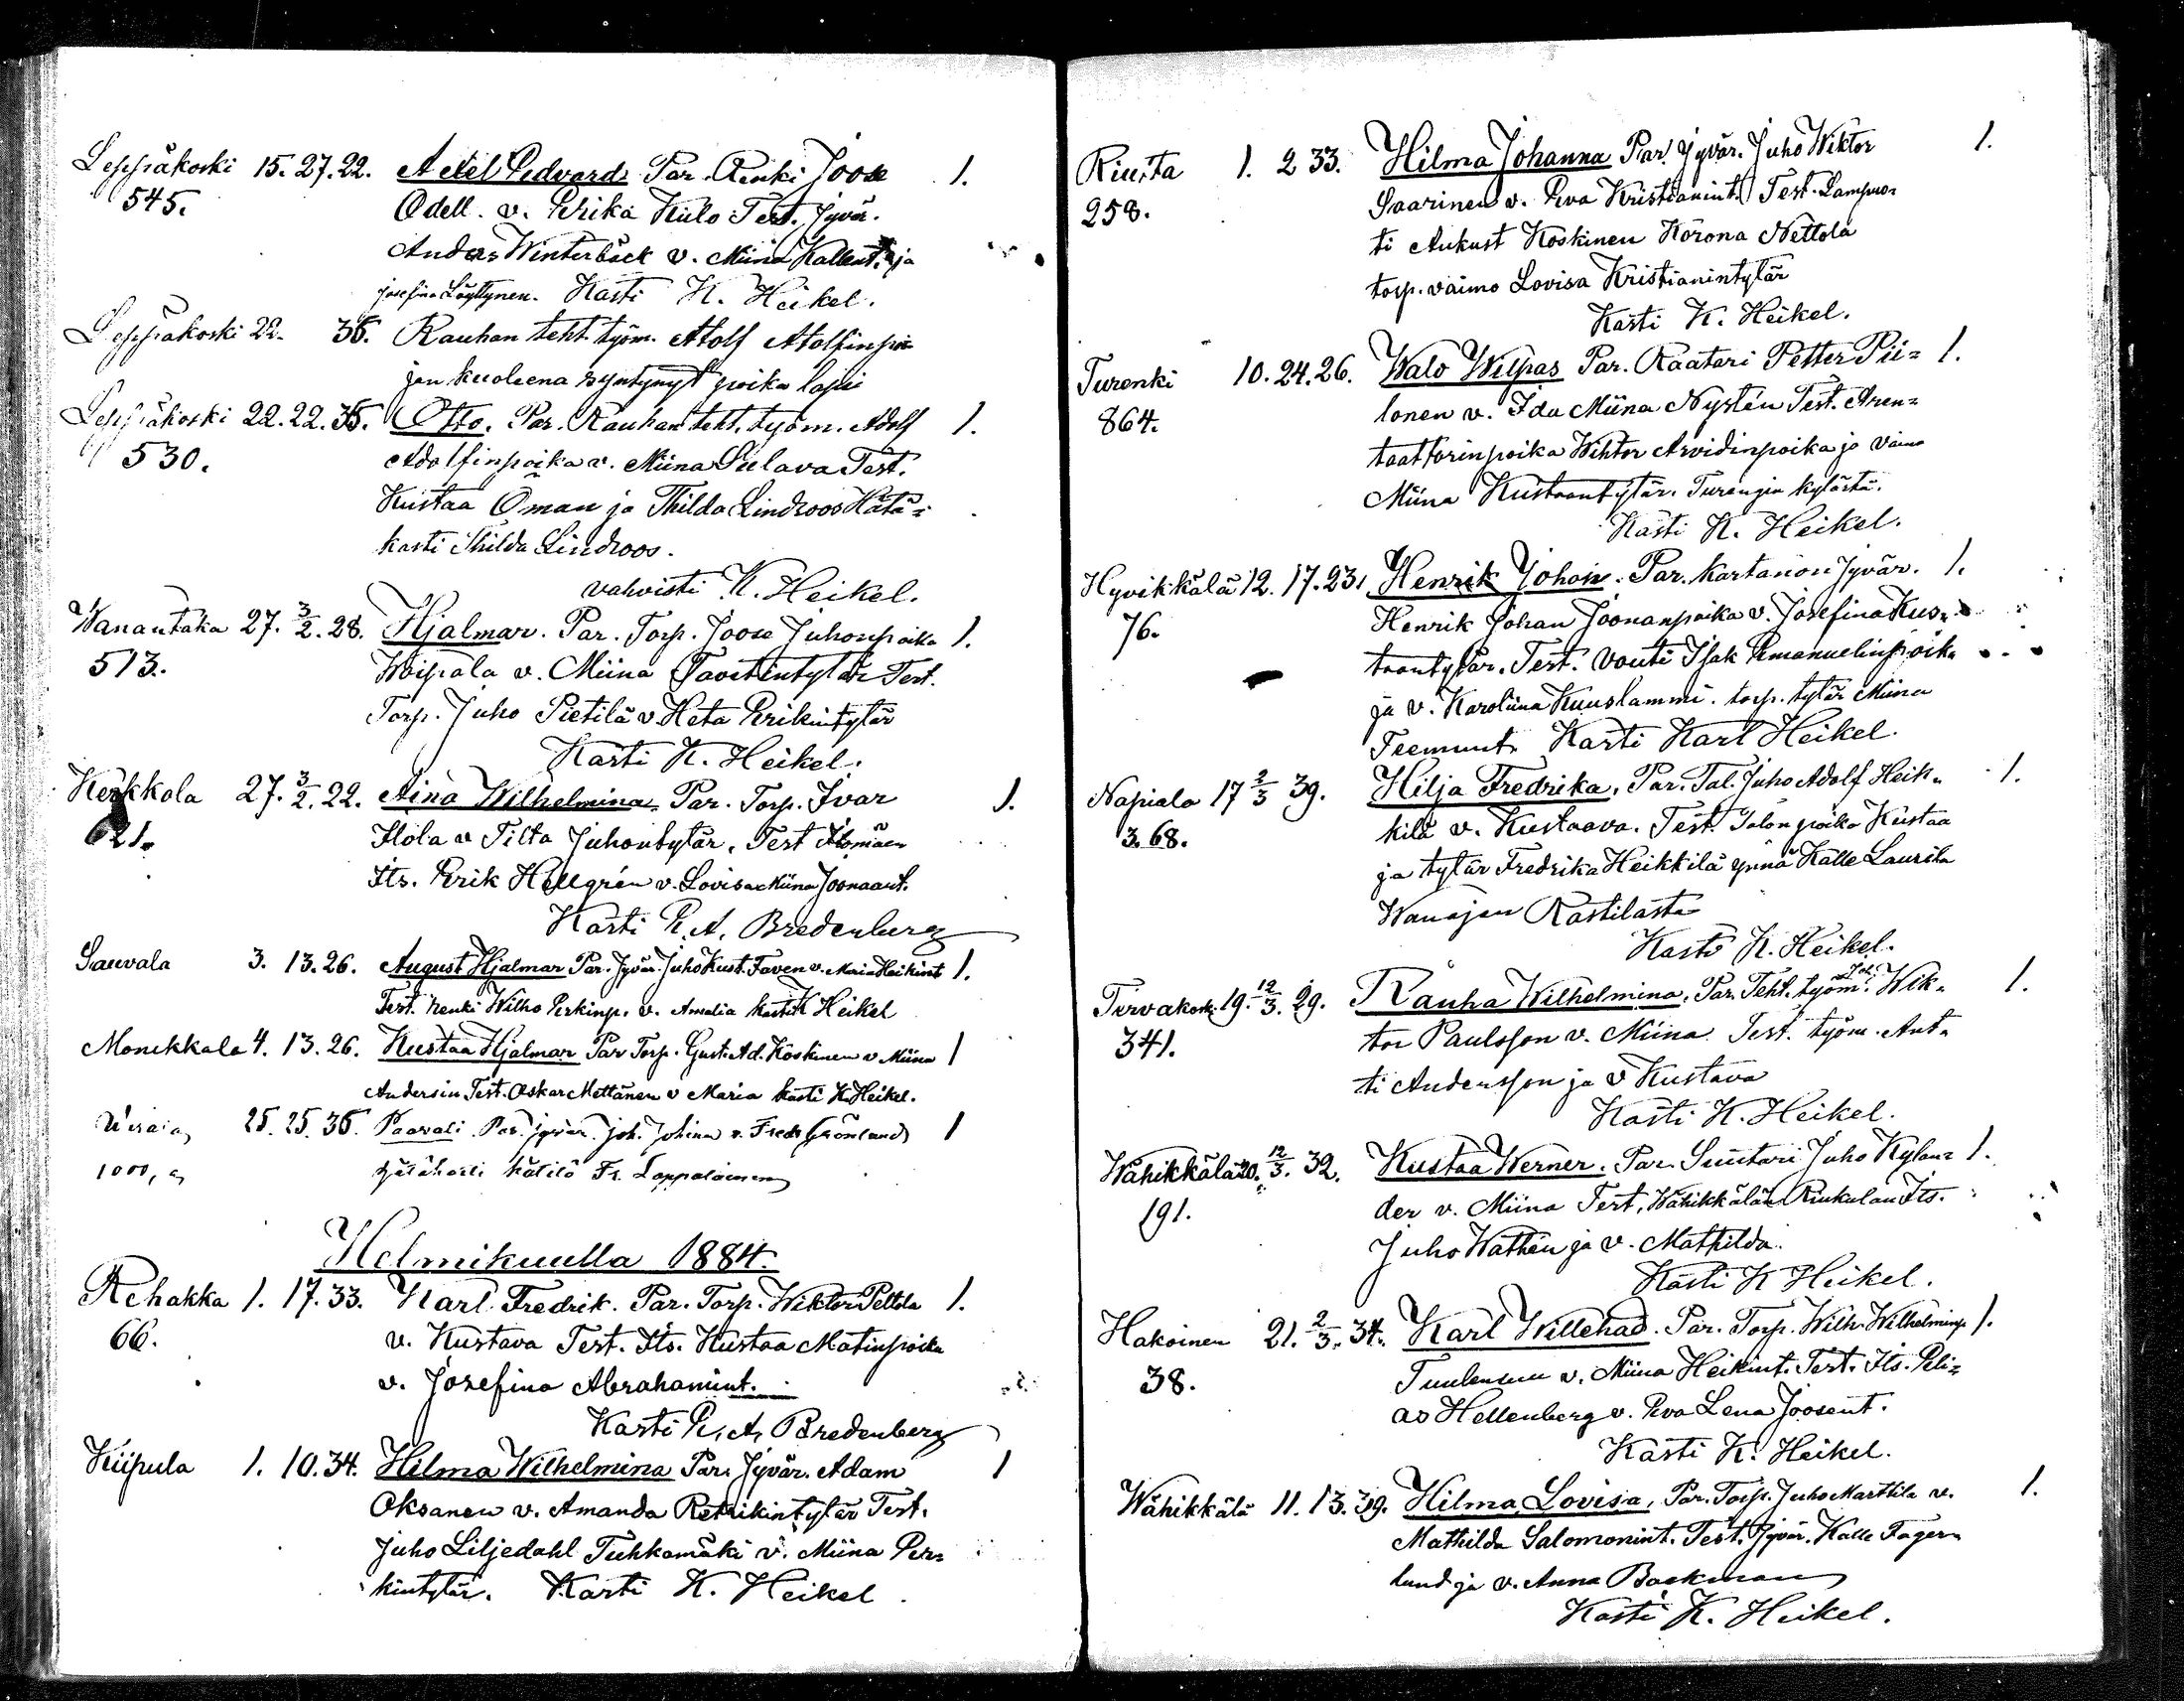 Leppäkoski 15. 27. 22. Axel Edvard Par. Renki Joose 1.
545. Odell v. Erika Kulo Test. Jyvär.
Anders Winterbäck v. Miina Kallent. ja
Josefina Löyttynen. Kasti K. Heikel.
Leppäkoski 22. 36. Rauhan teht. työm. Atolf Atolfinpoi
jan kuoleena syntynyt poika lapsi
Leppäkoski 22. 22. 35. Otto. Par. Rauhan teht. työm. Adolf 1.
530. Adolfinpoika v. Miina Sulava Test.
Kustaa Öman ja Thilda Lindroos Hätä=
kasti Thilda Lindroos.
vahvisti K. Heikel.
Wanantaka 27. 3/2. 28. Hjalmar. Par. Torp. Joose Juhonpoika 1.
513. Woipala v. Miina Taavetintytär Test.
Torp. Juho Pietilä v. Heta Erikintytär
Kasti K. Heikel.
Kerkkola 27. 3/2. 22. Aina Wilhelmina. Par. Torp. Ivar 1.
621. Ilola v Tilta Juhontytär. Test
Its. Erik Hellgrén v. Lovisa Miina Joonaant.
Kasti E. A. Bredenberg
Sauvala 3. 13. 26. August Hjalmar Par. Jyvär. Juho Kust. Faven v. Maria Heikint 1.
Test. renki Wilho Erkinp. v. Amalia kasti K Heikel
Monikkala 4. 13. 26. Kustaa Hjalmar Par Torp. Gust. Ad. Koskinen v Miina 1
Andersin Test. Oskar Mettänen v Maria kasti K. Heikel.
25. 25. 36. Paavali. Par. jyvär. Joh. v. Fredr Grönlund 1
1000, hätäkasti kätilö Fr. Lappalainen
Helmikuulla 1884.
Rehakka 1. 17. 33. Karl Fredrik. Par. Torp. Wiktor Peltola 1.
66. v. Kustava Test. Its. Kustaa Matinpoika
v. Josefina Abrahamint.
Kasti E. A. Bredenberg
Kiipula 1. 10. 34. Hilma Wilhelmina Par. Jyvär. Adam 1
Oksanen v. Amanda Retrikintytär Test.
Juho Liljedahl Tuhkamäki v. Miina Er=
kintytär. Kasti K. Heikel.
Riusta 1. 2 33. Hilma Johanna Par. Jyvär. Juho Wiktor 1.
258. Saarinen v. Eva Kristianint. Test. Lampuo=
ti Aukust Koskinen Körona Nettola
torp. vaimo Lovisa Kristianintytär
Kasti K. Heikel.
Turenki 10. 24. 26. Walo Wilpas Par. Räätäri Petter Pii= 1.
864. lonen v. Ida Miina Nystén Test. Aren=
taattorinpoika Wihtor Arvidinpoika ja vaimo
Miina Kustaantytär. Turengin kylästä.
Kasti K. Heikel.
Hyvikkälä 12. 17. 23. Henrik Johan. Par. Kartanon Jyvär. 1.
76. Henrik Johan Joonanpoika v. Josefina Kus=
taantytär. Test. Vouti Isak Emanuelinpoika
ja v. Karoliina Kuuslammi. torp. tytär Miina
Teemunt. Kasti Karl Heikel.
Napiala 17 2/3 39. Hilja Fredrika. Par. Tal. Juho Adolf Heik= 1.
368. kilä v. Kustaava. Test. Talon poika Kustaa
ja tytär Fredrika Heikkilä ynnä Kalle Laurila
Wanajan Rastilasta
Kasti K. Heikel.
Tervakosk. 19. 12/3. 29. Rauha Wilhelmina. Par. Teht. työm. Joh. Wik= 1.
341. tor Paulsson v. Miina Test. työm. Ant=
ti Andersson ja v Kustava
Kasti K. Heikel.
Wähikkälä 20. 12/3. 32. Kustaa Werner. Par. Suutari Juho Kylan= 1.
191. der v. Miina Test. Wähikkälän Ruukulan Its.
Juho Wathén ja v. Mathilda.
Kasti K Heikel.
Hakoinen 21. 2/3. 34. Karl Willehad. Par. Torp. Wilh. Wilhelminp. 1.
38. Tuulensuu v. Miina Heikint. Test. Its. Eli=
as Hellenberg v. Eva Lena Joosent.
Kasti K. Heikel.
Wähikkälä 11. 13. 39. Hilma Lovisa. Par. Torp. Juho Marttila v. 1.
Mathilda Salomonint. Test. Jyvär. Kalle Fager=
lund ja v. Anna Backman
Kasti K. Heikel.